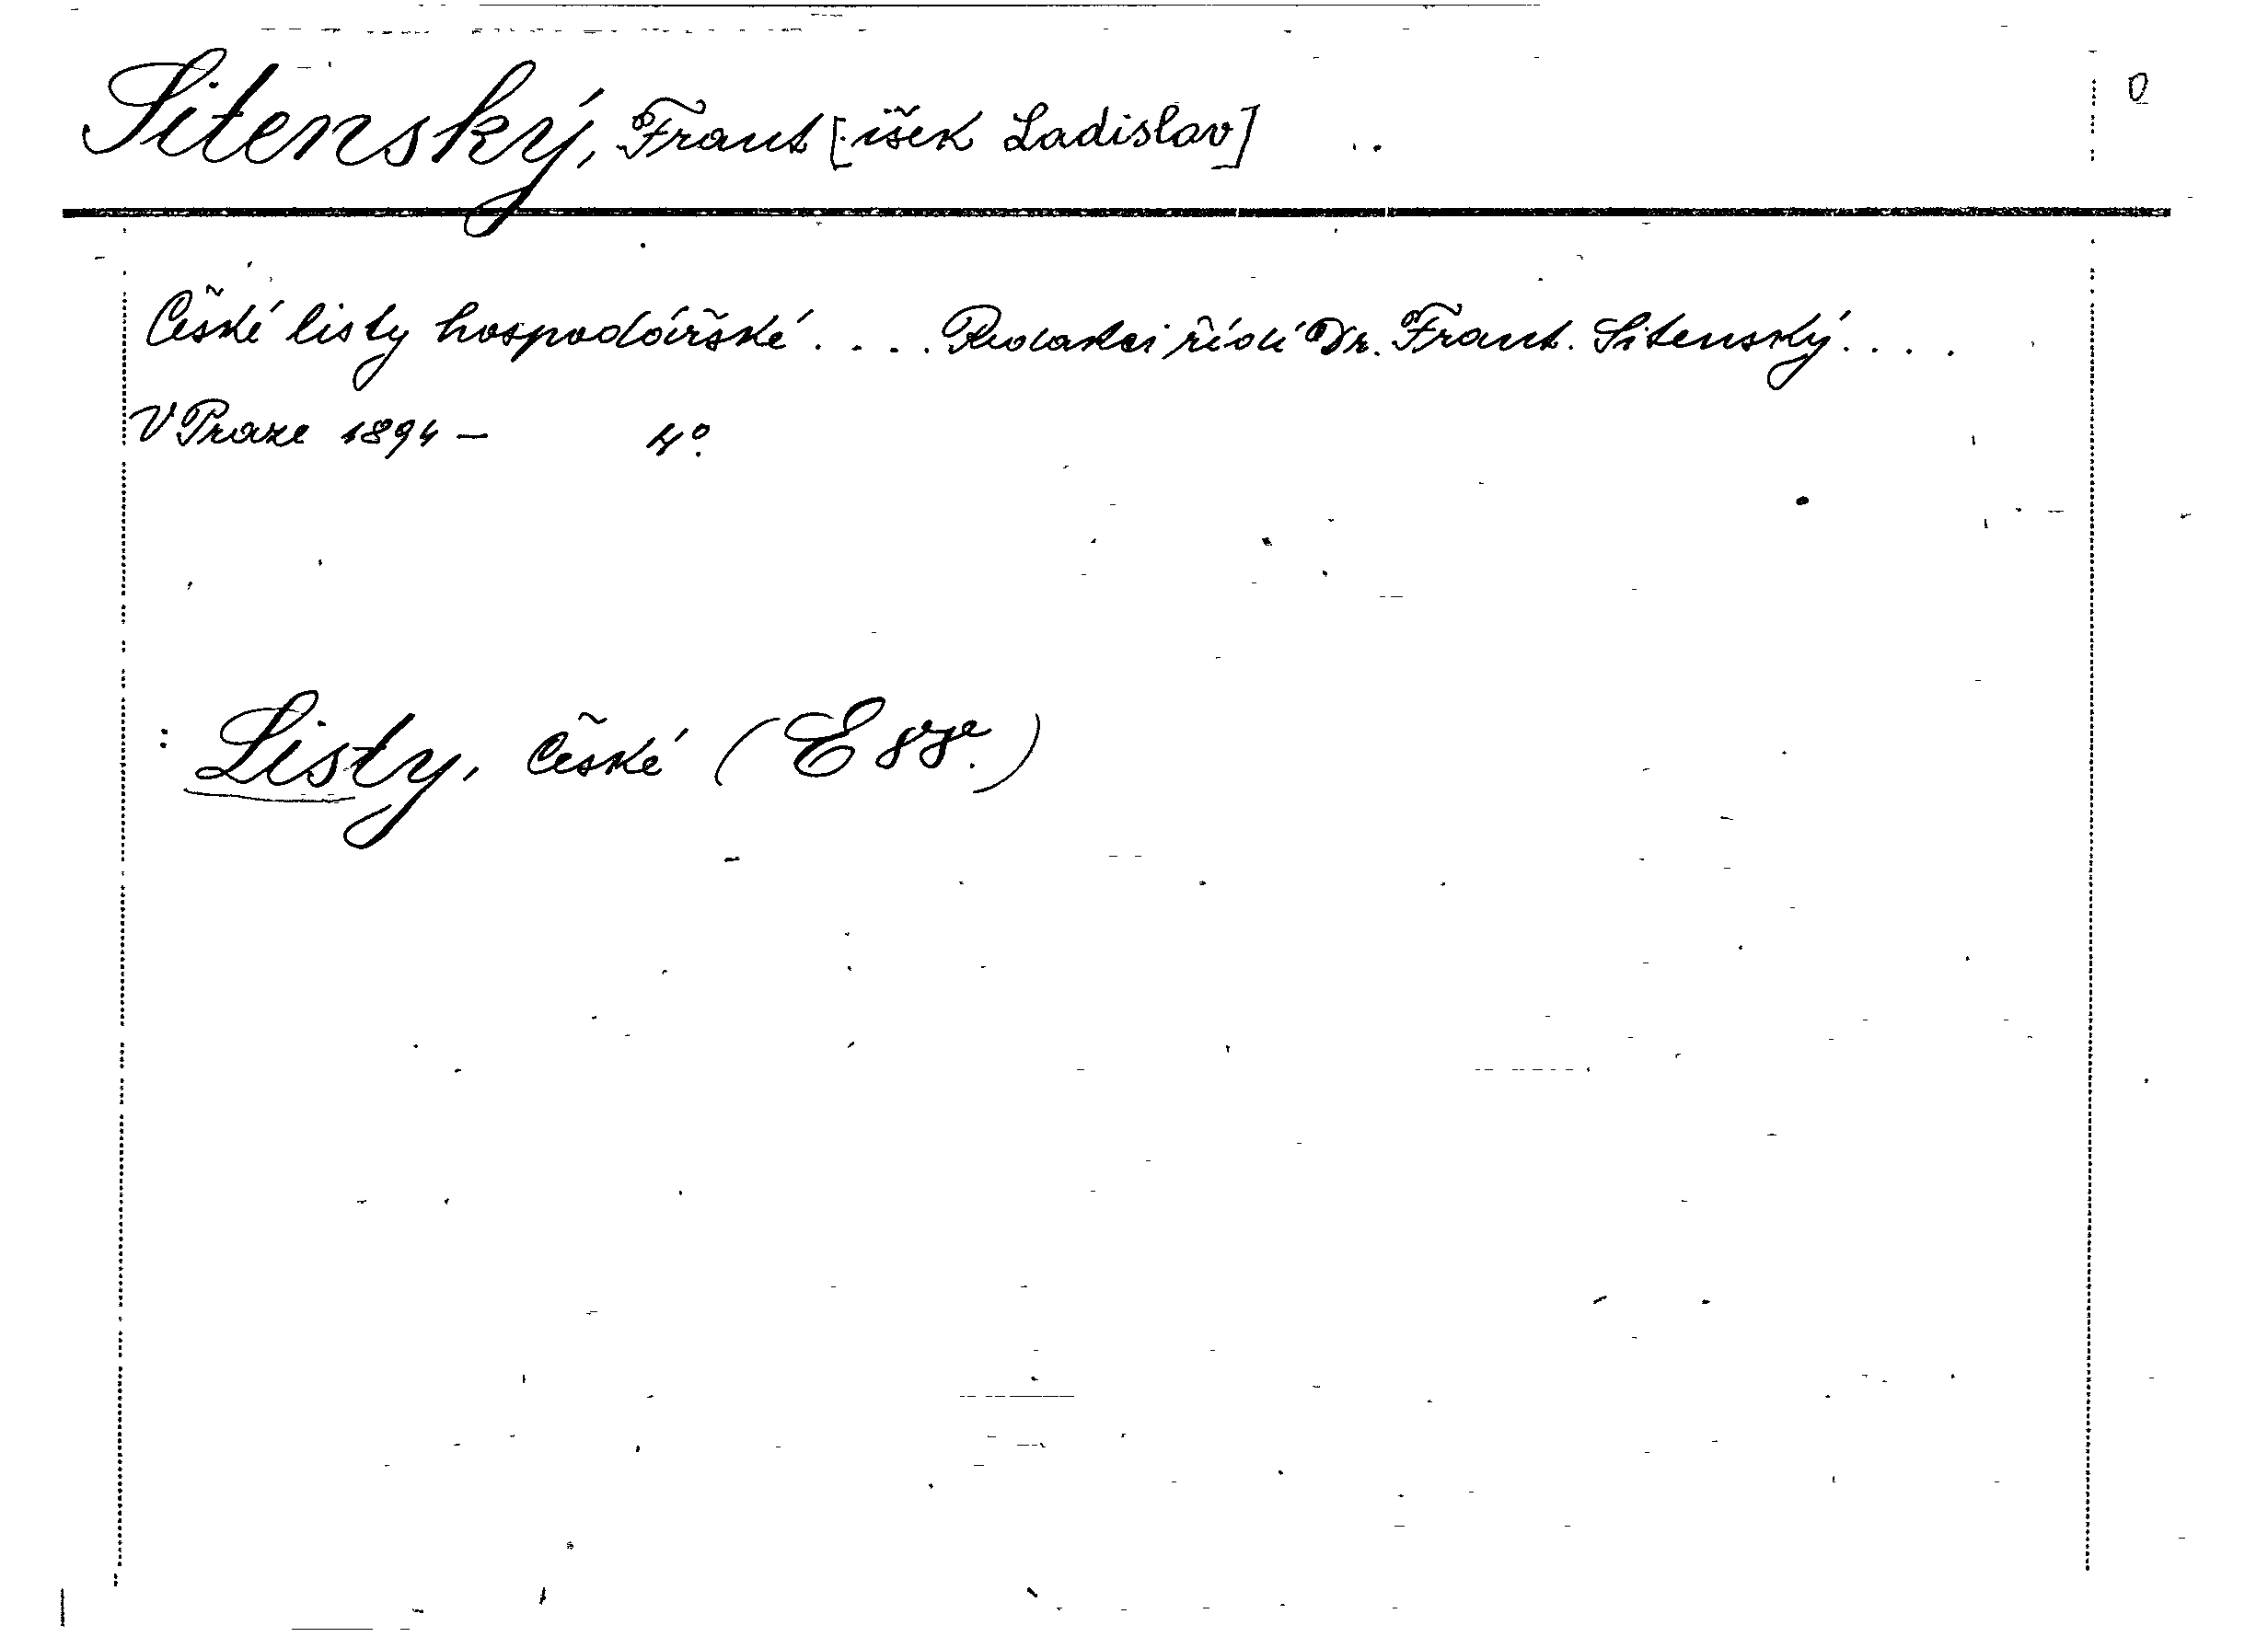 Sitenský, Frant[išek Ladislav]
České listy hospodářské.... Redakci řídí Dr. Frant. Sitenský....
V Praze 1894 – 4°.
: Listy, České (E